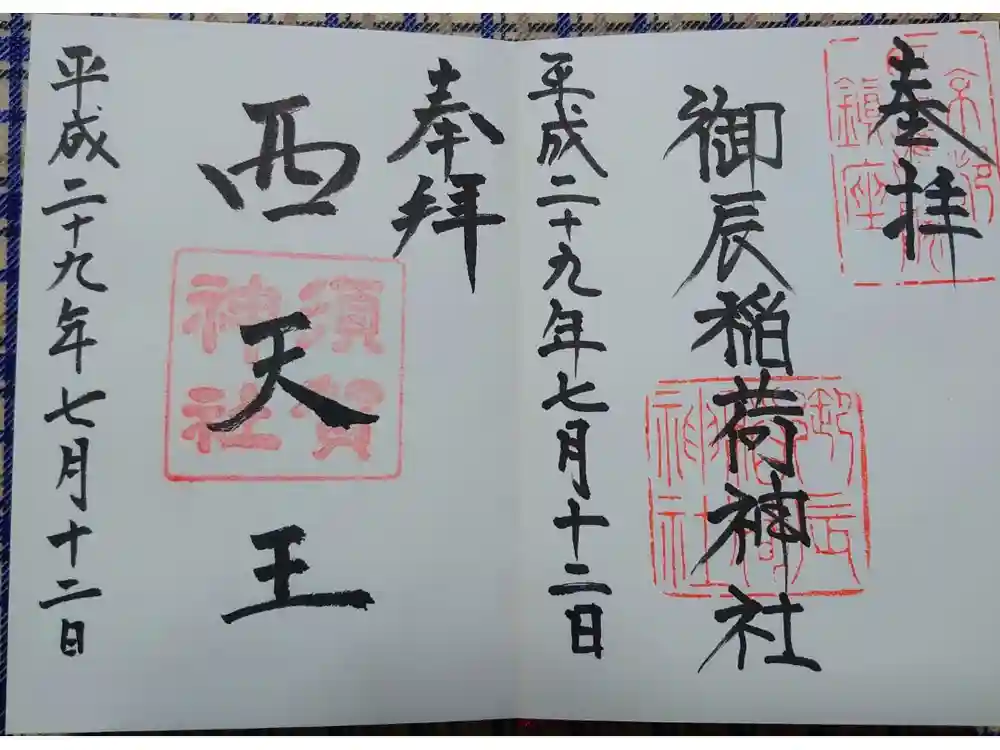 奉拝
御辰稲荷神社
御辰稲荷神社
平成二十九年七月十二日
奉拝
西天王
須賀神社
平成二十九年七月十二日